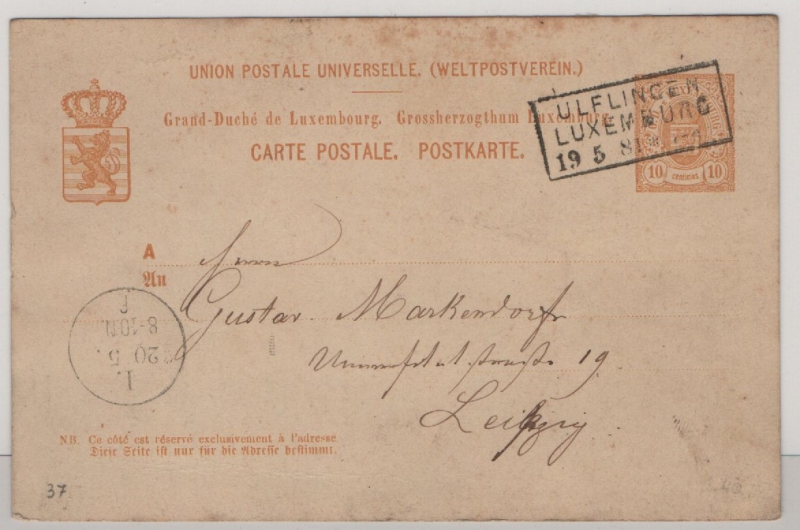 UNION POSTALE UNIVERSELLE. (WELTPOSTVEREIN.)
Grand-Duché de Luxembourg. Grossherzogthum Luxemburg.
CARTE POSTALE. POSTKARTE.
ULFLINGEN
LUXEMBURG
19 5 81
10 CENTIMES 10
A
An
Herrn
Gustav Markendorf
19
Leipzig.
I.
20 5.
8-10N.
NB. Ce côté est réservé exclusivement à l'adresse
Diese Seite ist nur für die Adresse bestimmt.
37